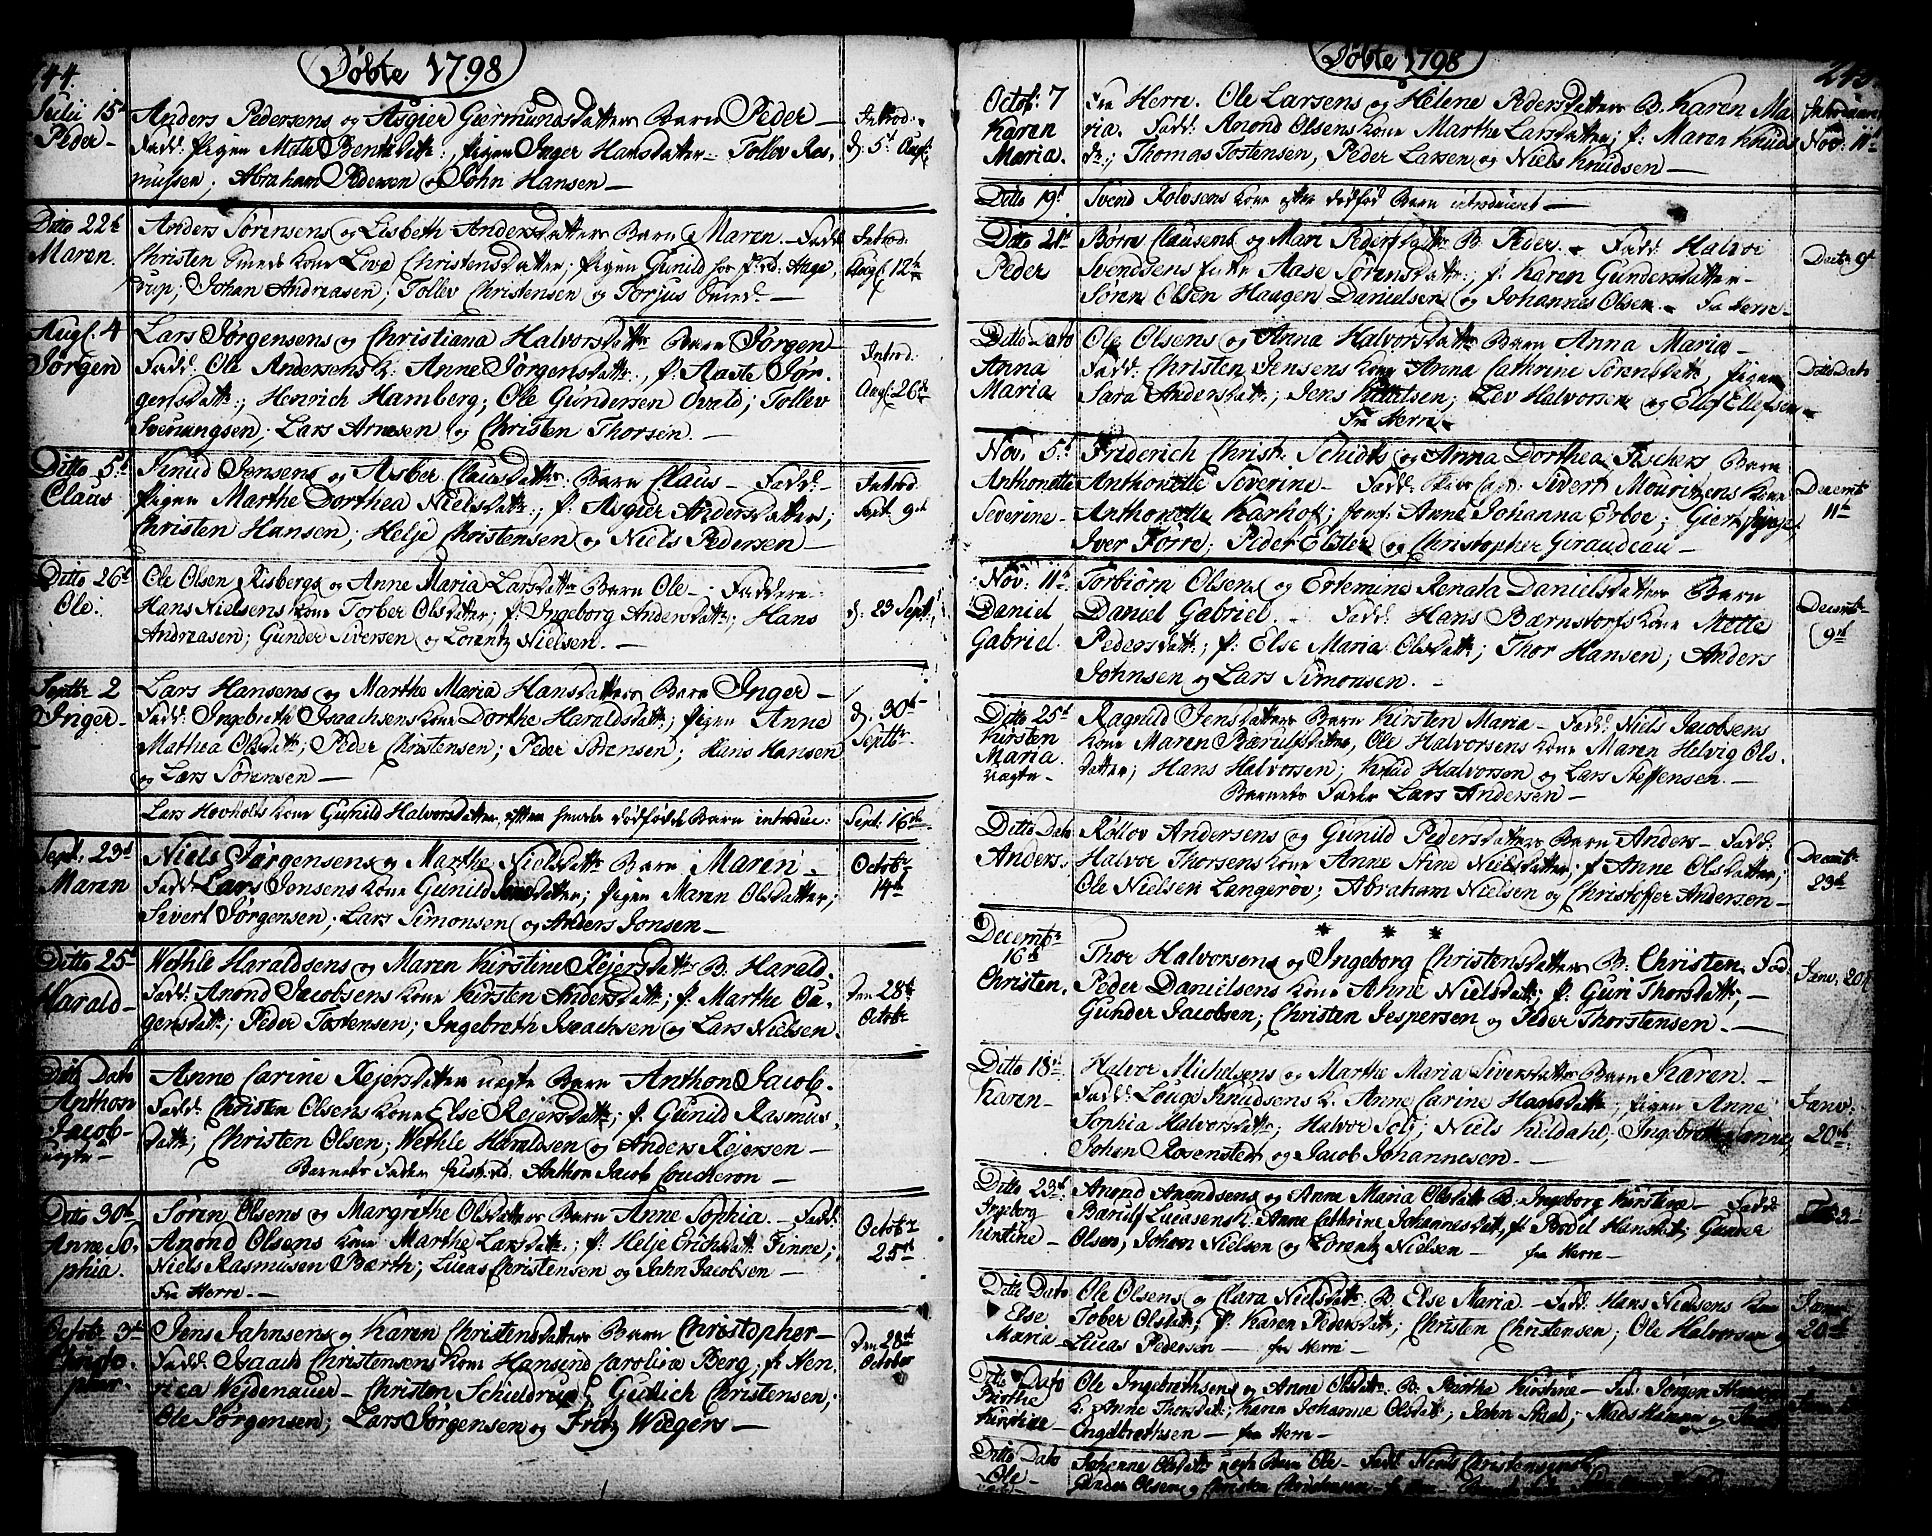 244.
Døbte 1798
Julii 15de
Peder
Anders Pedersens og Asgier Giermundsdatters Barn Peder
Fadd: Pigen Mole Bentsdatt: Pigen Inger Hansdatter: Tollev Ras-
mussen, Abraham Pedersen og John Hansen
Introd:
d: 5t Augt:
Ditto 22de
Maren.
Anders Sørensens og Lisbeth Andersdatters Barn Maren. Fadd:
Christen Smeds kone Live Christensdatter; Pigen Gunild hos Hage-
rup, Johan Andreasen; Tollev Christensen og Torjus Smed
Introd:
Augt 12te
Augt. 4
Jørgen
Lars Jørgensens og Christiana Halvorsdatt: Barn Jørgen
Fadd: Ole Andersens K: Anne Jørgensdatt:, p: Aaste Jør-
gensdatt:; Henrich Hamberg; Ole Gundersen Ovald; Tollev
Sverungsen, Lars Arnesen og Christen Thorsen.
Introd:
Augt: 26te
Ditto 5t
Claus
Knud Jensens og Asber Clausdatters Barn Claus Fadd:
Pigen Marthe Dorthea Nielsdatt:, p: Asgier Andersdatter;
Christen Hansen; Helje Christensen og Niels Pedersen
Introd:
Sept: 9de
Ditto 26t
Ole:
Ole Olsen Risbergs og Anne Maria Larsdatters Barn Ole. Faddere
Hans Nielsens kone Torber Olsdatter; p: Ingeborg Andersdatt:; Hans
Andreasen; Gunder Siversen og Lorentz Nielsen.
d: 23 Sept:
Septbr 2
Inger
Lars Hansens og Marthe Maria Hansdatters Barn Inger
Fadd: Ingebreth Isaachsens kone Dorthe Haraldsdatt:; Pigen Anne
Mathea Olsdatt:; Peder Christensen; Peder Sørensen; Hans Hansen
og Lars Sørensen
d: 30te
Septbr.
Lars Hovholts kone Gunild Halvorsdatter, efter hendes dødfødte Barn introduc:
Sept: 16de
Sept: 23d
Maren
Niels Jørgensens og Marthe Nielsdatt: Barn Maren
Fadd: Lars Jonsens kone Gunild datter; Pigen Maren Olsdatter;
Sivert Jørgensen; Lars Simonsen og Anders Jonsen
Octobr
14de
Ditto 25d
Harald
Wethle Haraldsens og Maren Kirstine Rejersdatt: B. Harald.
Fadd: Anond Jacobsens kone Kirsten Andersdatt:; p: Marthe Au-
gensdatt:; Peder Tostensen; Ingebreth Isaachsen og Lars Nielsen
Den 28de
Octobr
Ditto Dato
Anthon
Jacob
uægte
Anne Carine Rejersdatter uægte Barn Anthon Jacob.
Fadd: Christen Olsens kone Else Rejersdatt:; p: Gunild Rasmus-
datt:; Christen Olsen; Wethle Haraldsen og Anders Rejersen
Barnets Fader Anthon Jacob Coucheron
Ditto 30te
Anne So-
phia.
Søren Olsens og Margrethe Olsdatters Barn Anne Sophia. Fadd:
Anond Olsens kone Marthe Larsdatt:; p: Helje Erichsdatt: Finne;
Niels Rasmusen Barth; Lucas Christensen og Jahn Jacobsen
Fra Herre.
Octobr
25de
Octobr 3de
Christo-
pher.
Jens Jahnsens og Karen Christensdatters Barn Christopher
Fadd: Isaach Christensens kone Hansine Carolina Berg; fr: Hen-
rica Wejdenauer Christen Schieldrup; Gullich Christensen;
Ole Jørgensen; Lars Jørgensen og Fritz Wiegers
Den 28de
October
Døbte 1798
245
Octob: 7
Karen
Maria.
Fra Herre. Ole Larsens og Helene Pedersdatters B. Karen Ma-
ria. Fadd: Anond Olsens kone Marthe Larsdatter; p: Maren Knuds-
d:; Thomas Tostensen, Peder Larsen og Niels Knudsen
Introduceret
Nov: 11te
Ditto 19d
Svend Rolvsens kone efter dødfød Barn introduceret
Ditto 21de
Peder
Børre Clausens og Mari Pedersdatters B. Peder. Fadd: Halvor
Svendsens Aase Sørensdatt:; p: Karen Gundersdatter
Søren Olsen Haugen Danielsen og Johannes Olsen. Fra Herre
Dectr 9de
Ditto Dato
Anna
Maria
Ole Olsens og Anna Halvorsdatt: Barn Anna Maria
Fadd: Christen Jensens kone Anna Cathrine Sørensdatt:, Pigen
Sara Andersdatt:; Jens Kittelsen; Lev Halvorsen og Ellof Ellefsen
Fra Herre
Ditto Dato
Nov: 5t
Anthonette
Severine
Friderich Christ: Schidts og Anna Dorthea Fischers Barn
Anthonette Severine Fadd: Capt: Sivert Mouritzens kone
Anthonette Karhof; Jomf: Anne Johanna Erboe; Giert
Iver Førre; Peder Elster og Christopher Giraudeau
Decembr
11te
Nov: 11te
Daniel
Gabriel.
Torbiørn Olsens og Ertemine Renata Danielsdatters Barn
Daniel Gabriel. Fadd: Hans Bærnstorfs kone Mette
Pedersdatt:; p: Else Maria Olsdatt:; Thor Hansen; Anders
Johnsen og Lars Simonsen.
Decembr
9de
Ditto 25d
Kirsten
Maria
uægte
Ragnild Jensdatters Barn Kirsten Maria Fadd: Niels Jacobsens
kone Maren Bærulfsdatter, Ole Halvorsens kone Maren Helvig Ols-
datter; Hans Halvorsen; Knud Halvorsen og Lars Steffensen.
Barnets Fader Lars Andersen
Ditto Dato
Anders.
Rollov Andersens og Gunild Pedersdatters Barn Anders Fadd:
Halvor Thorsens kone Anne Stine Nielsdatter; p: Anne Olsdatter;
Ole Nielsen Langerøv; Abraham Nielsen og Christoffer Andersen
Decembr
23de
* * *
Decembr
16de
Christen.
Thor Halvorsens og Ingeborg Christensdatters B: Christen. Fad:
Peder Danielsens kone Anne Nielsdatt:; p: Guri Thorsdatt:;
Gunder Jacobsen; Christen Jespersen og Peder Thorstensen
Janv: 20de
Ditto 18de
Karen
Halvor Michelsens og Marthe Maria Siversdatters Barn Karen.
Fadd: Louge Knudsens k: Anne Carine Hansdatt:, Pigen Anne
Sophia Halvorsdatt:; Halvor Solj; Niels Kildahl; Ingebreth
Johan Rosensted og Jacob Johannesen
Janv:
20de
Ditto 23d
Ingeborg
Kirstine
Anond Anondsens og Anne Maria Olsdatt: B. Ingeborg Kirstine Fadd:
Bærulf Lucasens k: Anne Cathrine Johannesdat:, p: Bodil Hansdat; Gunder
Olsen; Johan Nielsen og Lorentz Nielsen fra Herre
Ditto Dato
Else
Maria
Ole Olsens og Clara Nielsdatt: B Else Maria. Fadd: Hans Nielsens kone
Tober Olsdatt:; p: Karen Pedersdatt:; Christen Christensen; Ole Halvorsen og
Lucas Pedersen fra Herre
Janv:
20de
Ditto Dato
Birthe
Kirstine
Ole Ingebrethsens og Anne Olsdatt: B: Birthe Kirstine Fad: Jørgen Hansens
k: Anne Thorsdatt:; Karen Johanne Olsdatt; Jahn Skial; Mads Hansen og
Engelbrethsen fra Herre
Ditto Dato
Ole
Johanne Olsdatt: uægte Barn Ole Fadd: Niels Christensens k:
Gunder Olsen og Christen Christensen